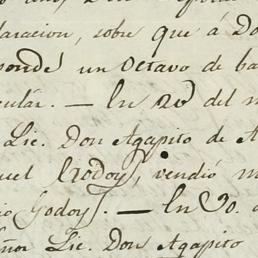 laracion, sobre que á Do
sponde un octavo de ba
cular. — En 20 del m
Lic. Don Agapito de A
uel Godoy, vendió m
io Godoy. — En 30.
eñor Lic. Don Agapito